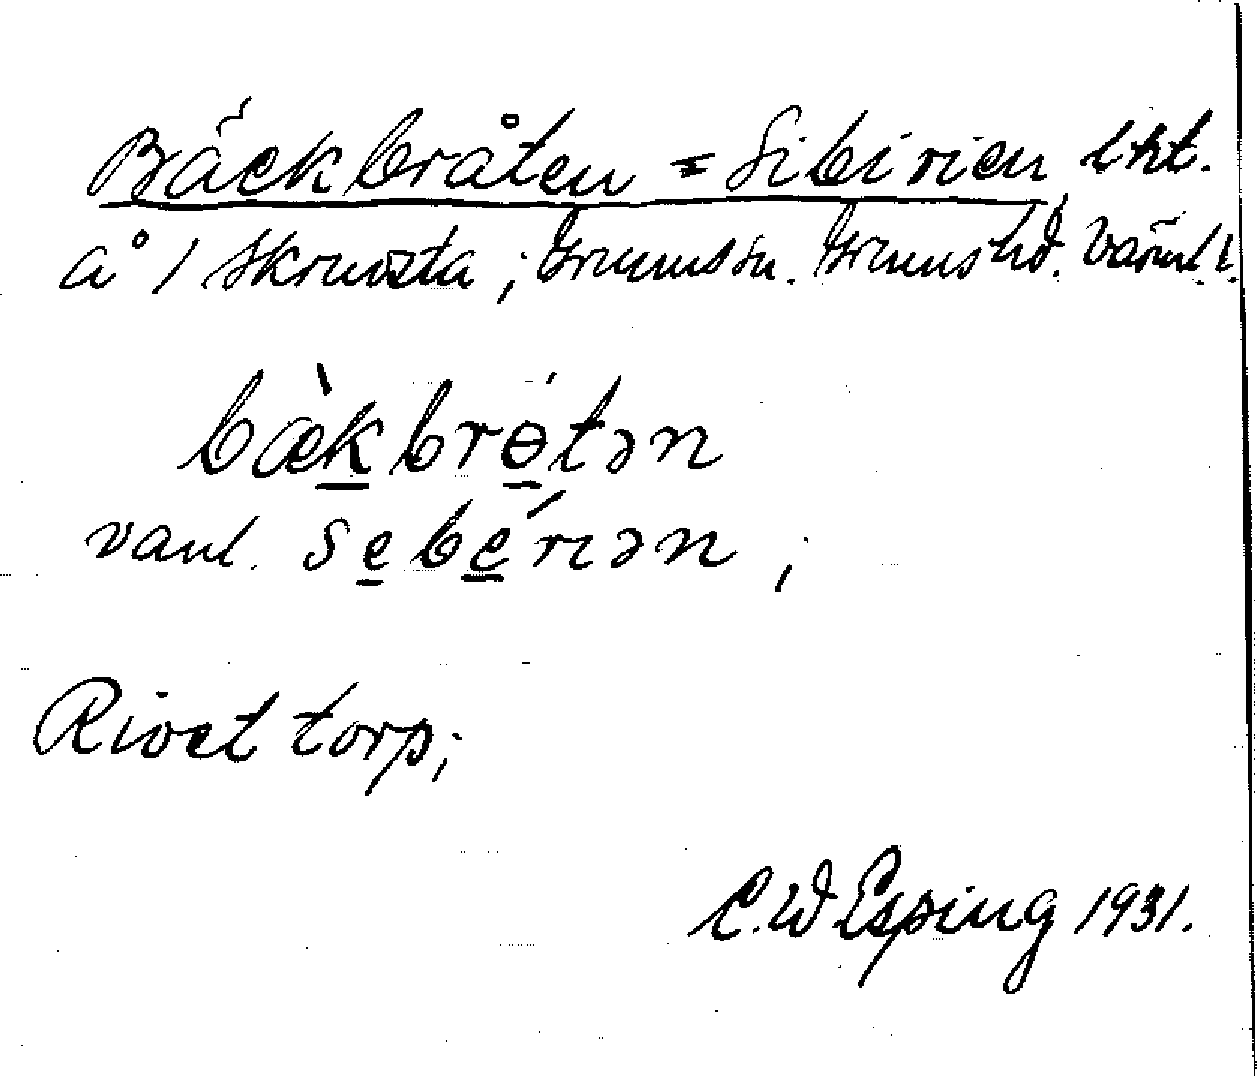 Bäckbråten = Sibirien lht.
å 1 Skruvsta; Grums sn. Grums hd. Värml. l.
bæ̀kbrɵ́tən
vanl. sebérıən;
Rivet torp;
C.W Esping 1931.